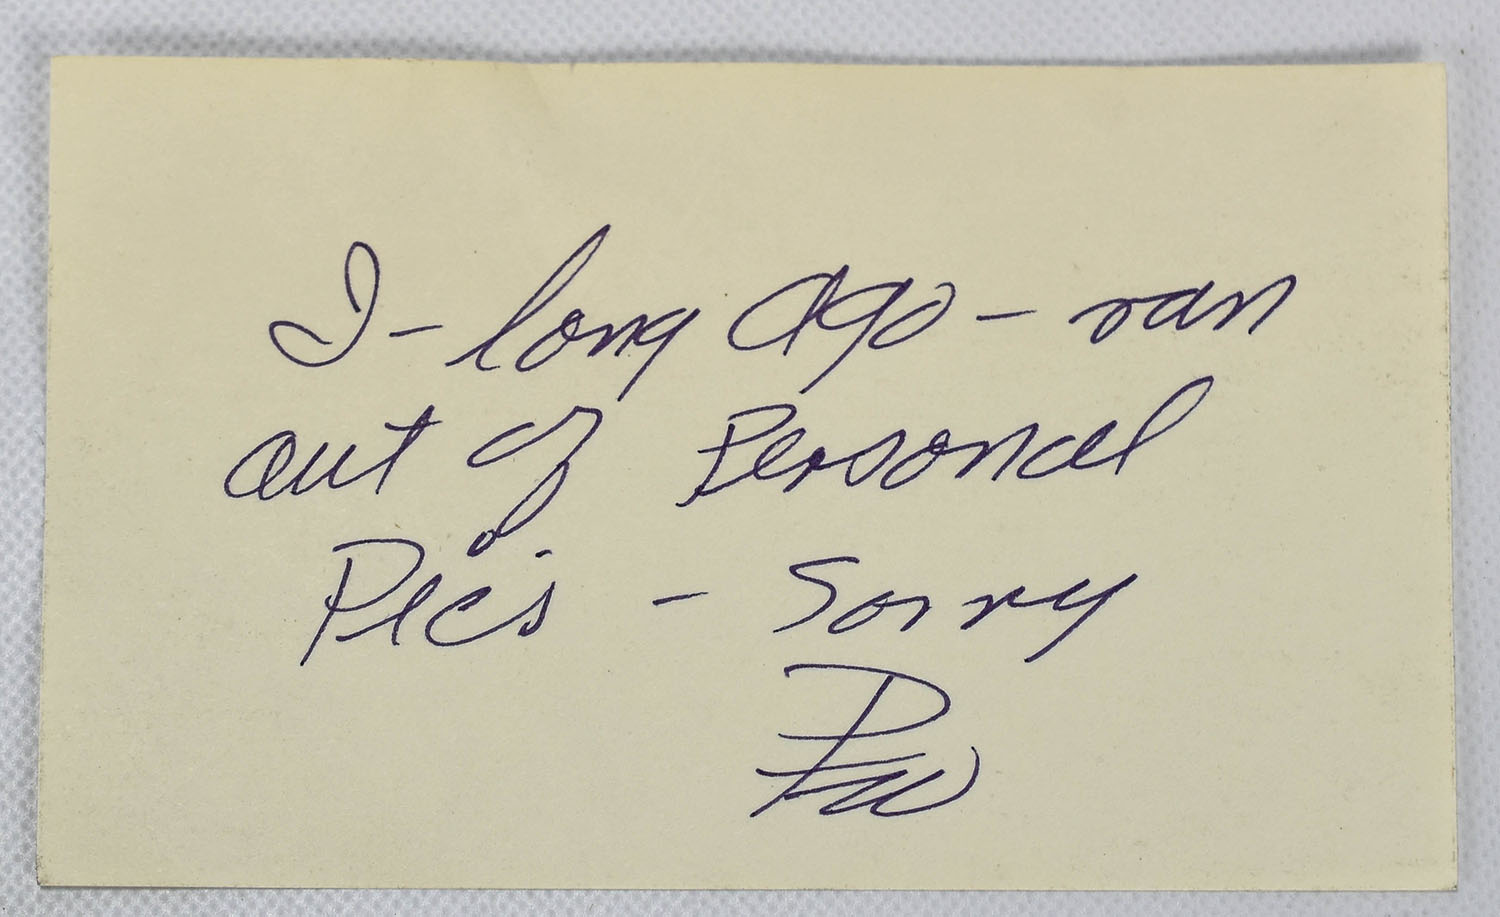 I - long ago - ran
out of Personal
Pic's - Sorry
PW